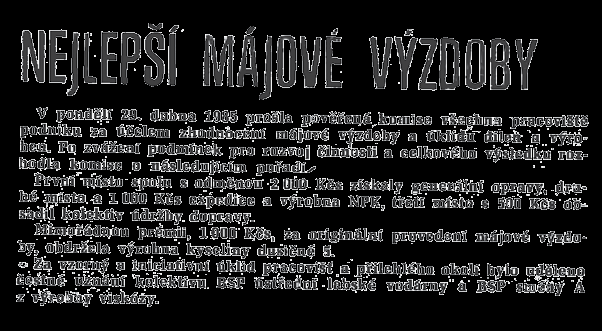 NEJLEPŠÍ MÁJOVÉ VÝZDOBY
V pondělí 29. dubna 1985 prošla pověřená komise všechna pracoviště
podniku za účelem zhodnocení májové výzdoby a úklidu dílek a výro-
ben. Po zvážení podmínek pro rozvoj činnosti a celkového výsledku roz-
hodla komise o následujícím pořadí.
První místo spolu s odměnou 2 000 Kčs získaly generální opravy, dru-
hé místa a 1 000 Kčs expedice a výrobna NPK, třetí místo s 500 Kčs ob-
sadil kolektiv údržby dopravy.
Mimořádnou prémii, 1 300 Kčs, za originální provedení májové výzdo-
by, obdržela výrobna kyseliny dusičné 5.
Za vzorný a iniciativní úklid pracovišť a přilehlého okolí bylo uděleno
čestné uznání kolektivu BSP ústřední labské vodárny a BSP směny A
z výrobny viskózy.